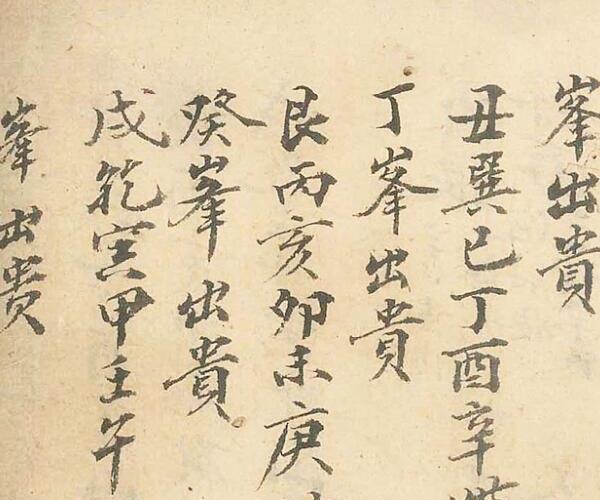 峯出貴
丑巽巳丁酉辛
丁峯出貴
艮丙亥卯未庚
癸峯出貴
戌乾寅甲壬午
峯出贵